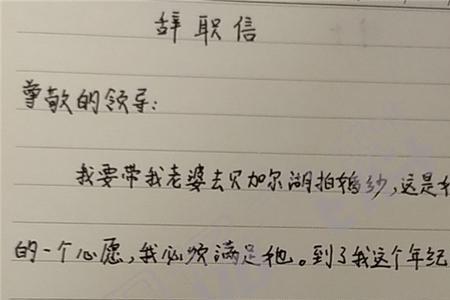 辞职信
尊敬的领导:
我要带我老婆去贝加尔湖拍婚纱,这是
的一个心愿,我必须满足他。到了我这个年纪